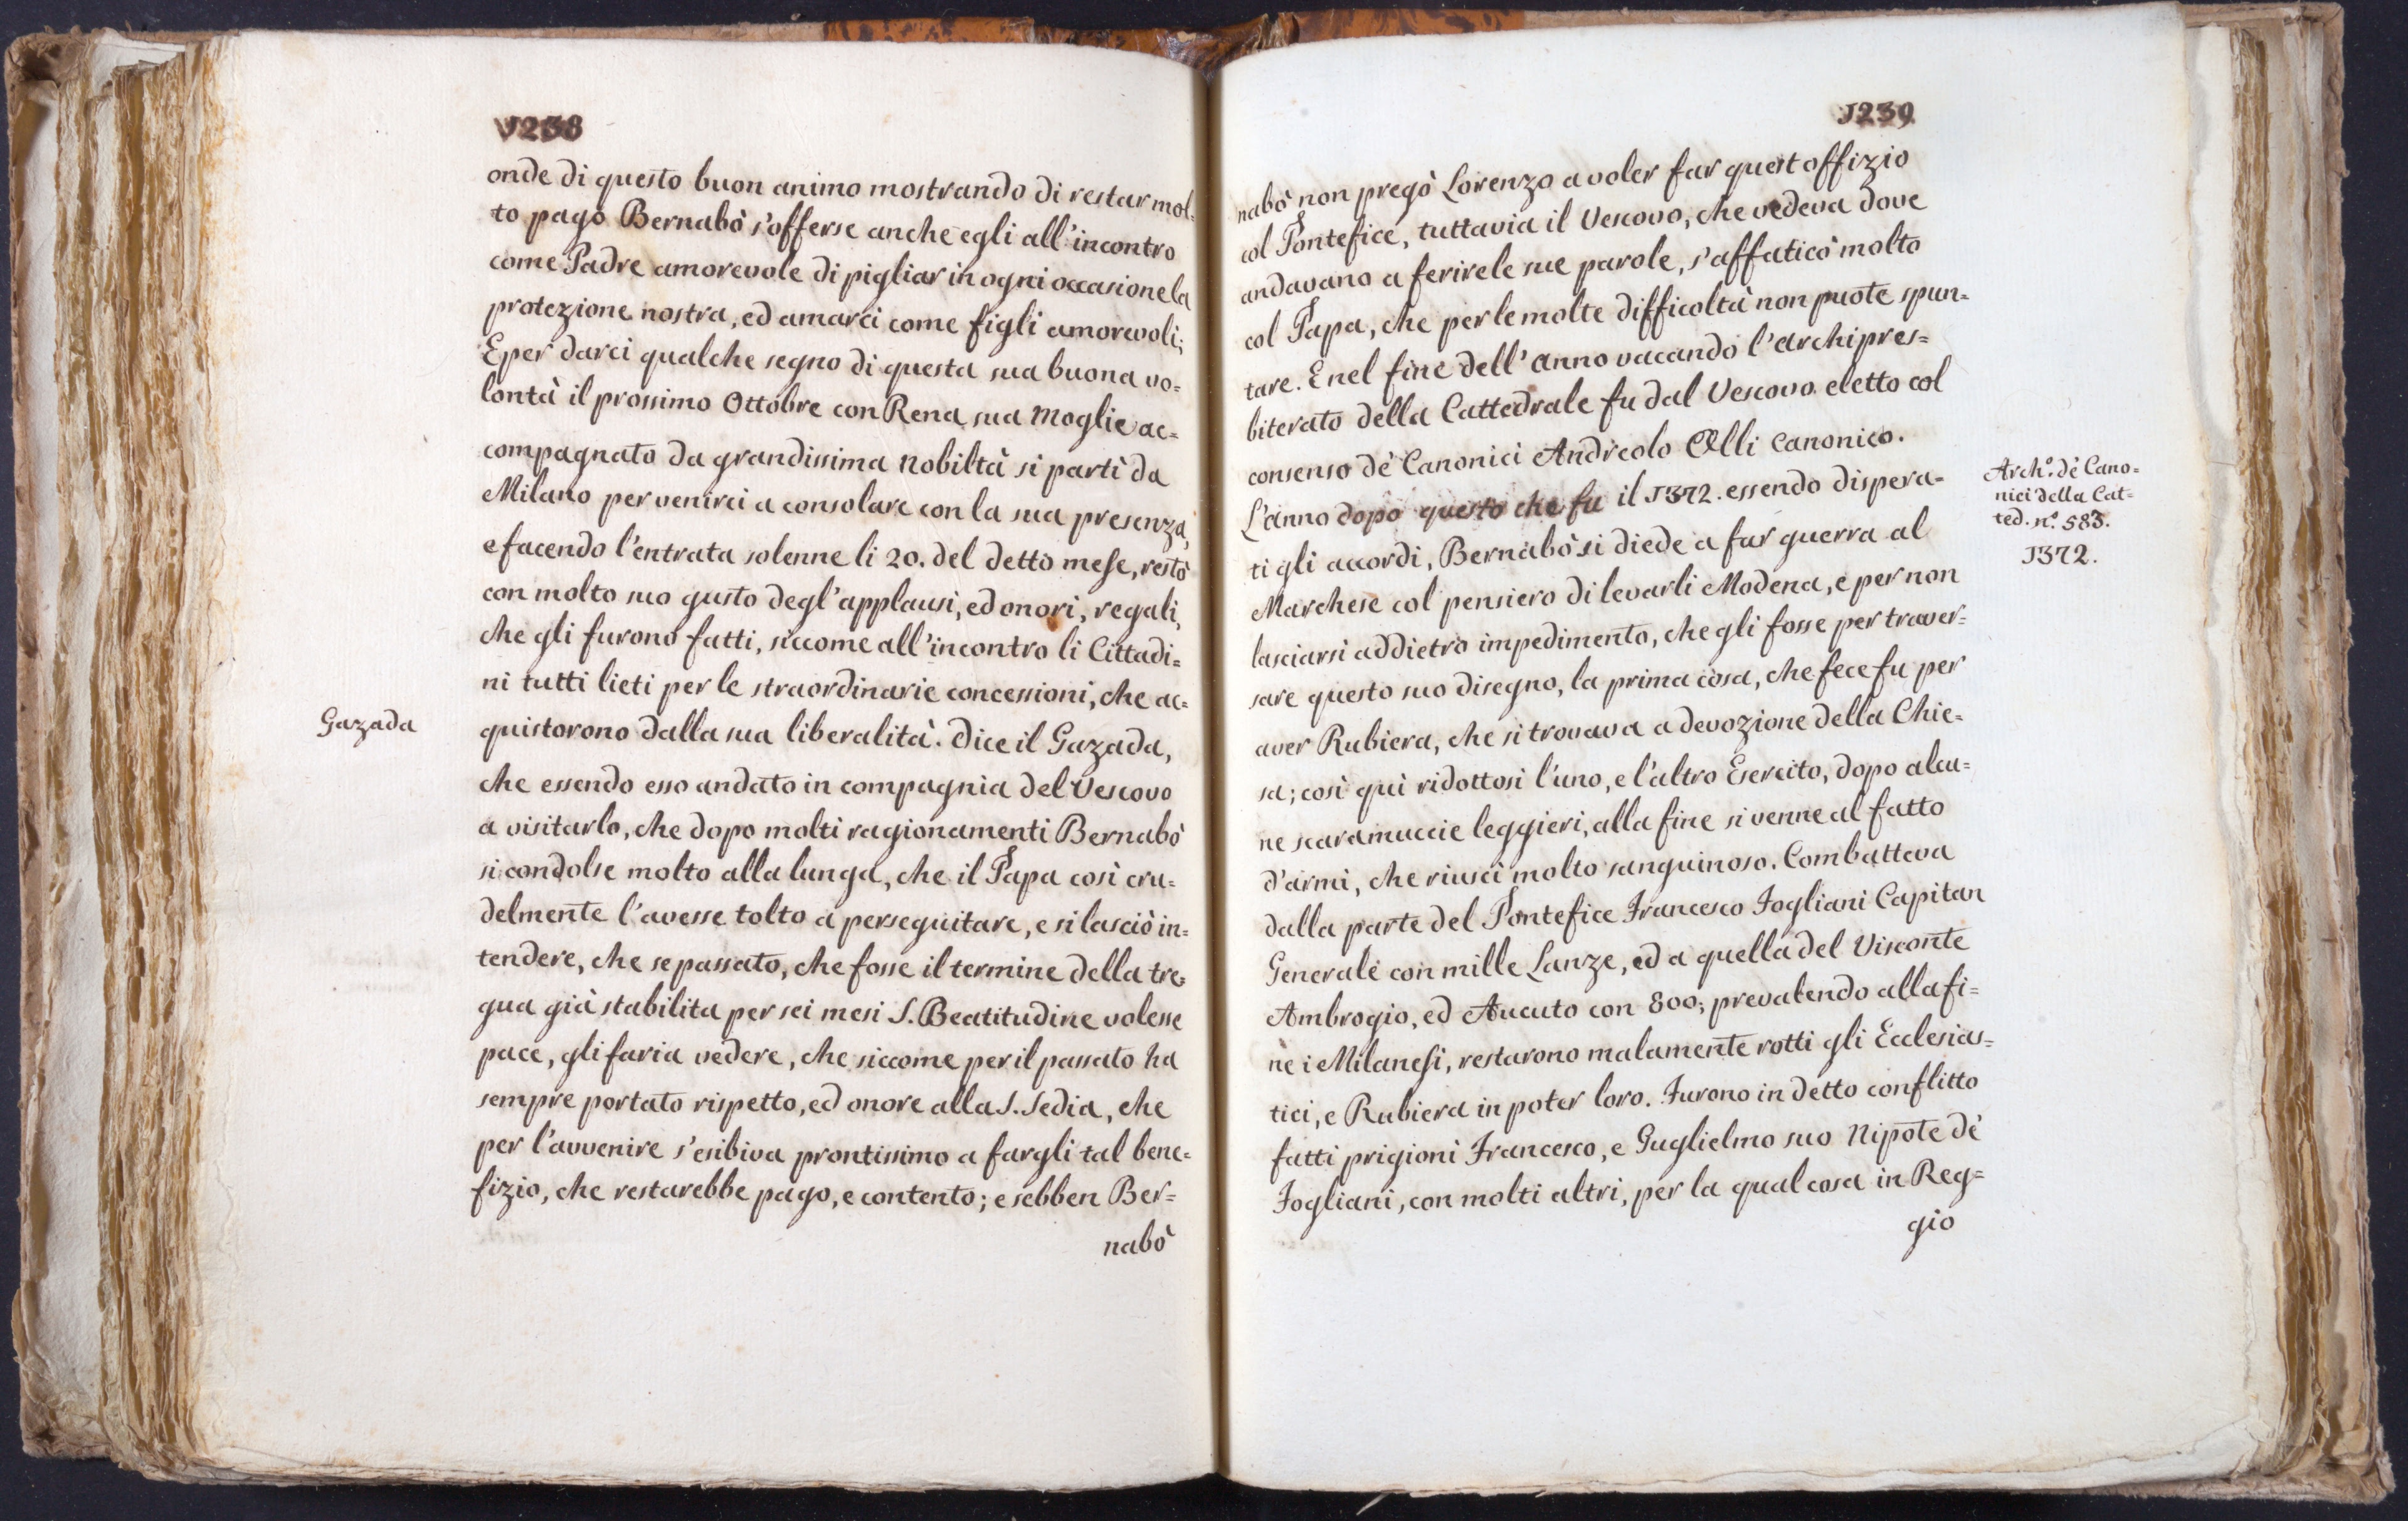 1238
onde di questo buon animo mostrando di restar mol=
to pago Bernabò s'offerse anche egli all'incontro
come Padre amorevole di pigliar in ogni occasione la
protezione nostra, ed amarci come figli amorevoli;
E per darci qualche segno di questa sua buona vo=
lontà il prossimo Ottobre con Rena sua Moglie ac=
compagnato da grandissima Nobiltà si partì da
Milano per venirci a consolare con la sua presenza,
e facendo l'entrata solenne li 20. del detto mese, restò
con molto suo gusto degl'applausi, ed onori, regali,
che gli furono fatti, siccome all'incontro li Cittadi=
ni tutti lieti per le straordinarie concessioni, che ac=
Gazada
quistorono dalla sua liberalità. Dice il Gazada,
che essendo esso andato in compagnia del Vescovo
a visitarlo, che dopo molti ragionamenti Bernabò
si condolse molto alla lunga, che il Papa così cru=
delmente l'avesse tolto a perseguitare, e si lasciò in=
tendere, che se passato, che fosse il termine della tre=
gua già stabilita per sei mesi S. Beatitudine volesse
pace, gli faria vedere, che siccome per il passato ha
sempre portato rispetto, ed onore alla S. Sedia, che
per l'avvenire s'esibiva prontissimo a fargli tal bene=
fizio, che restarebbe pago, e contento; e sebben Ber=
nabò
1239
nabò non pregò Lorenzo a voler far quest offizio
col Pontefice, tuttavia il Vescovo, che vedeva dove
andavano a ferire le sue parole, s'affaticò molto
col Papa, che per le molte difficoltà non puote spun=
tare. E nel fine dell'anno vacando l'archipres=
biterato della Cattedrale fu dal Vescovo eletto col
consenso de' Canonici Andreolo Alli Canonico.
L'anno dopo questo che fu il 1372. essendo dispera=
Arch.º de' Cano=
nici della Cat=
ted. n.º 583.
1372.
ti gli accordi, Bernabò si diede a far guerra al
Marchese col pensiero di levarli Modena, e per non
lasciarsi addietro impedimento, che gli fosse per traver=
sare questo suo disegno, la prima cosa, che fece fu per
aver Rubiera, che si trovava a devozione della Chie=
sa; così quì ridottosi l'uno, e l'altro Esercito, dopo alcu=
ne scaramuccie leggieri, alla fine si venne al fatto
d'armi, che riuscì molto sanguinoso. Combatteva
dalla parte del Pontefice Francesco Fogliani Capitan
Generale con mille Lanze, ed a quella del Visconte
Ambrogio, ed Aucuto con 800; prevalendo alla fi=
ne i Milanesi, restarono malamente rotti gli Ecclesias=
tici, e Rubiera in poter loro. Furono in detto conflitto
fatti prigioni Francesco, e Guglielmo suo Nipote de'
Fogliani, con molti altri, per la qual cosa in Reg=
gio